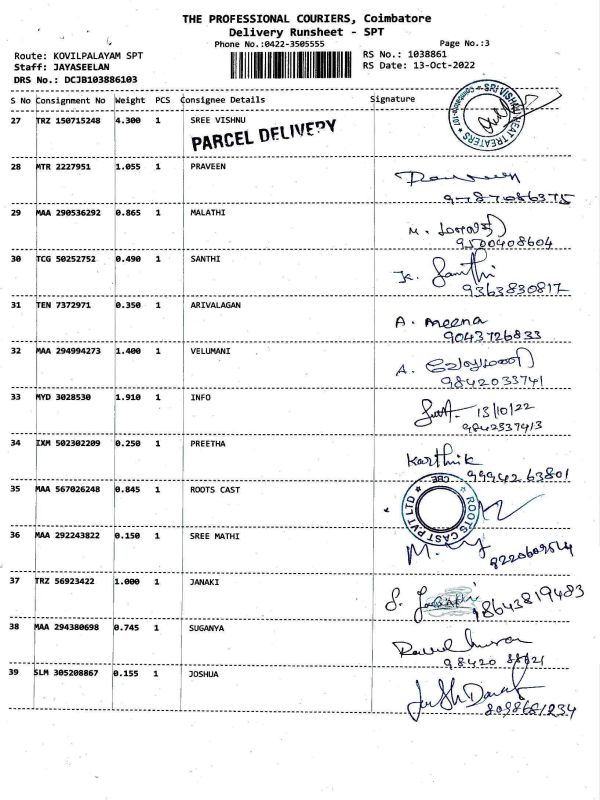 THE PROFESSIONAL COURIERS, Coimbatore
Delivery Runsheet - SPT
Phone No.:0422-3505555 Page No.:3
Route: KOVILPALAYAM SPT RS No.: 1038861
Staff: JAYASEELAN RS Date: 13-Oct-2022
DRS No.: DCJB103886103
S No Consignment No Weight PCS Consignee Details Signature
27 TRZ 150715248 4.300 1 SREE VISHNU
PARCEL DELIVERY
SRI VISHNU HEAT TREATERS
28 MTR 2227951 1.055 1 PRAVEEN
9787086375
29 MAA 290536292 0.865 1 MALATHI
M. மாலதி
9500408604
30 TCG 50252752 0.490 1 SANTHI
K. Santhi
9363830817
31 TEN 7372971 0.350 1 ARIVALAGAN
A. Meena
9043726833
32 MAA 294994273 1.400 1 VELUMANI
A. வேலுமணி
9842033741
33 MYD 3028530 1.910 1 INFO
13/10/22
9842537413
34 IXM 502302209 0.250 1 PREETHA
Karthik
99942 63801
35 MAA 567026248 0.845 1 ROOTS CAST
ROOTS CAST PVT LTD CBE
36 MAA 292243822 0.150 1 SREE MATHI
37 TRZ 56923422 1.000 1 JANAKI
S.
9864381 9483
38 MAA 294380698 0.745 1 SUGANYA
39 SLM 305208867 0.155 1 JOSHUA
8098681234